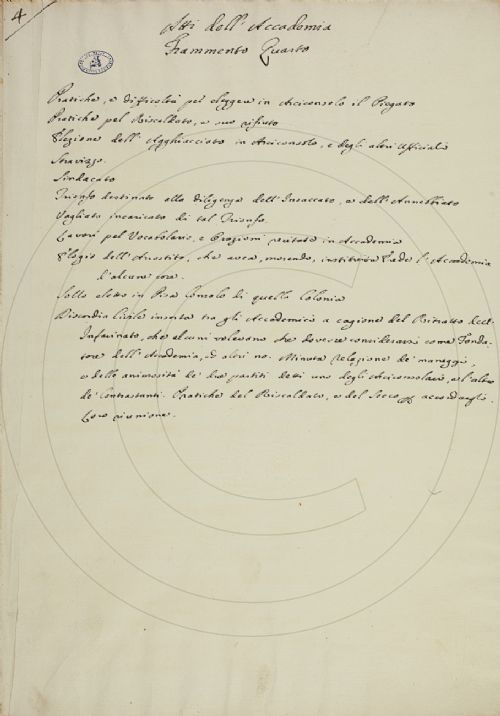 4
Atti dell' Accademia
Frammento Quarto
Pratiche, e difficoltà per eleggere in Arciconsolo il Piegato
Pratiche pel Riscaldato, e suo rifiuto
Elezione dell' Agghiacciato in Arciconsolo, e degli altri Ufficiali
Stravizzo.
Sindacato
Trionfo destinato alla diligenza dell' Insaccato, e dell' Annebbiato
Vagliato incaricato di tal Trionfo.
Lavori pel Vocabolario, e Orazioni recitate in Accademia
Elogio dell' che avea, morendo, instituita Erede l' Accademia
d'alcune cose.
Sollo eletto in Pisa Consolo di quella Colonia
Discordia Civile insorta tra gli Accademici a cagione del Ritratto dell'
Infarinato, che alcuni volevano che dovesse considerarsi come Fonda-
tore dell' Accademia, ed altri no. Minuta relazione de' maneggi,
e delle animosità de' due partiti detti uno degli Arciconsolari, e l'altro
de' Contrastanti. Pratiche del Riscaldato, e del Secco per accordargli.
Loro riunione.